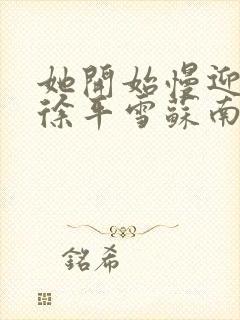 她開始慢迎
徐平雪蘇南
銘希